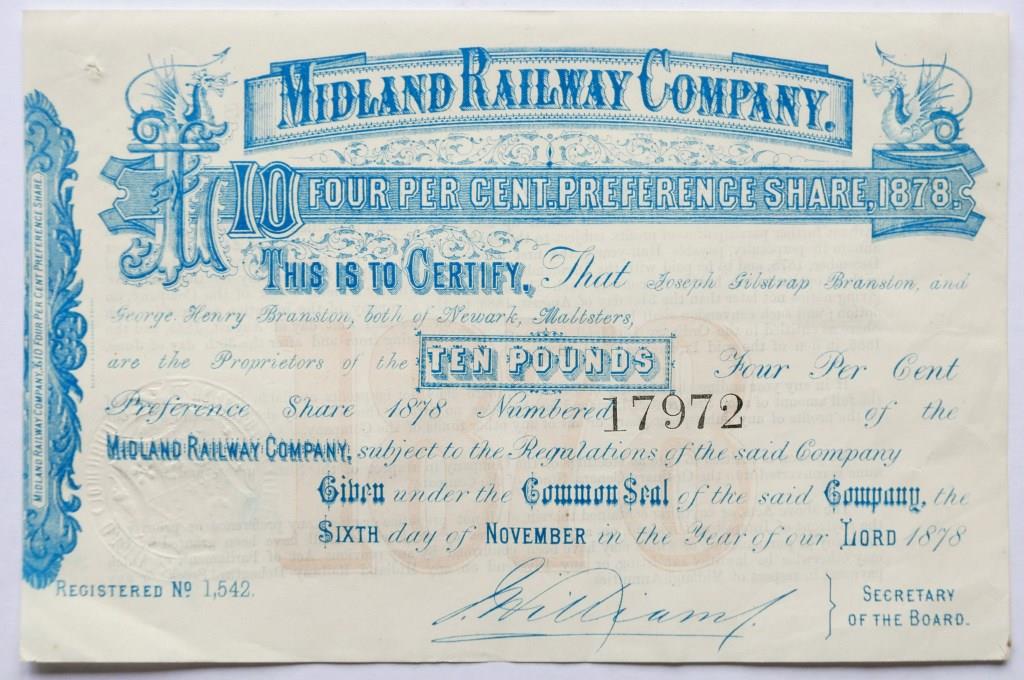 MIDLAND RAILWAY COMPANY.
£10 FOUR PER CENT. PREFERENCE SHARE, 1878.
THIS IS TO CERTIFY, That Joseph Gilstrap Branston, and
George Henry Branston, both of Newark, Maltsters,
are the Proprietors of the TEN POUNDS Four Per Cent
Preference Share 1878 Numbered 17972 of the
MIDLAND RAILWAY COMPANY, subject to the Regulations of the said Company
Given under the Common Seal of the said Company, the
SIXTH day of NOVEMBER in the Year of our LORD 1878
REGISTERED Nº 1,542.
J. Williams
SECRETARY
OF THE BOARD.
MIDLAND RAILWAY COMPANY. £10 FOUR PER CENT PREFERENCE SHARE.
1878